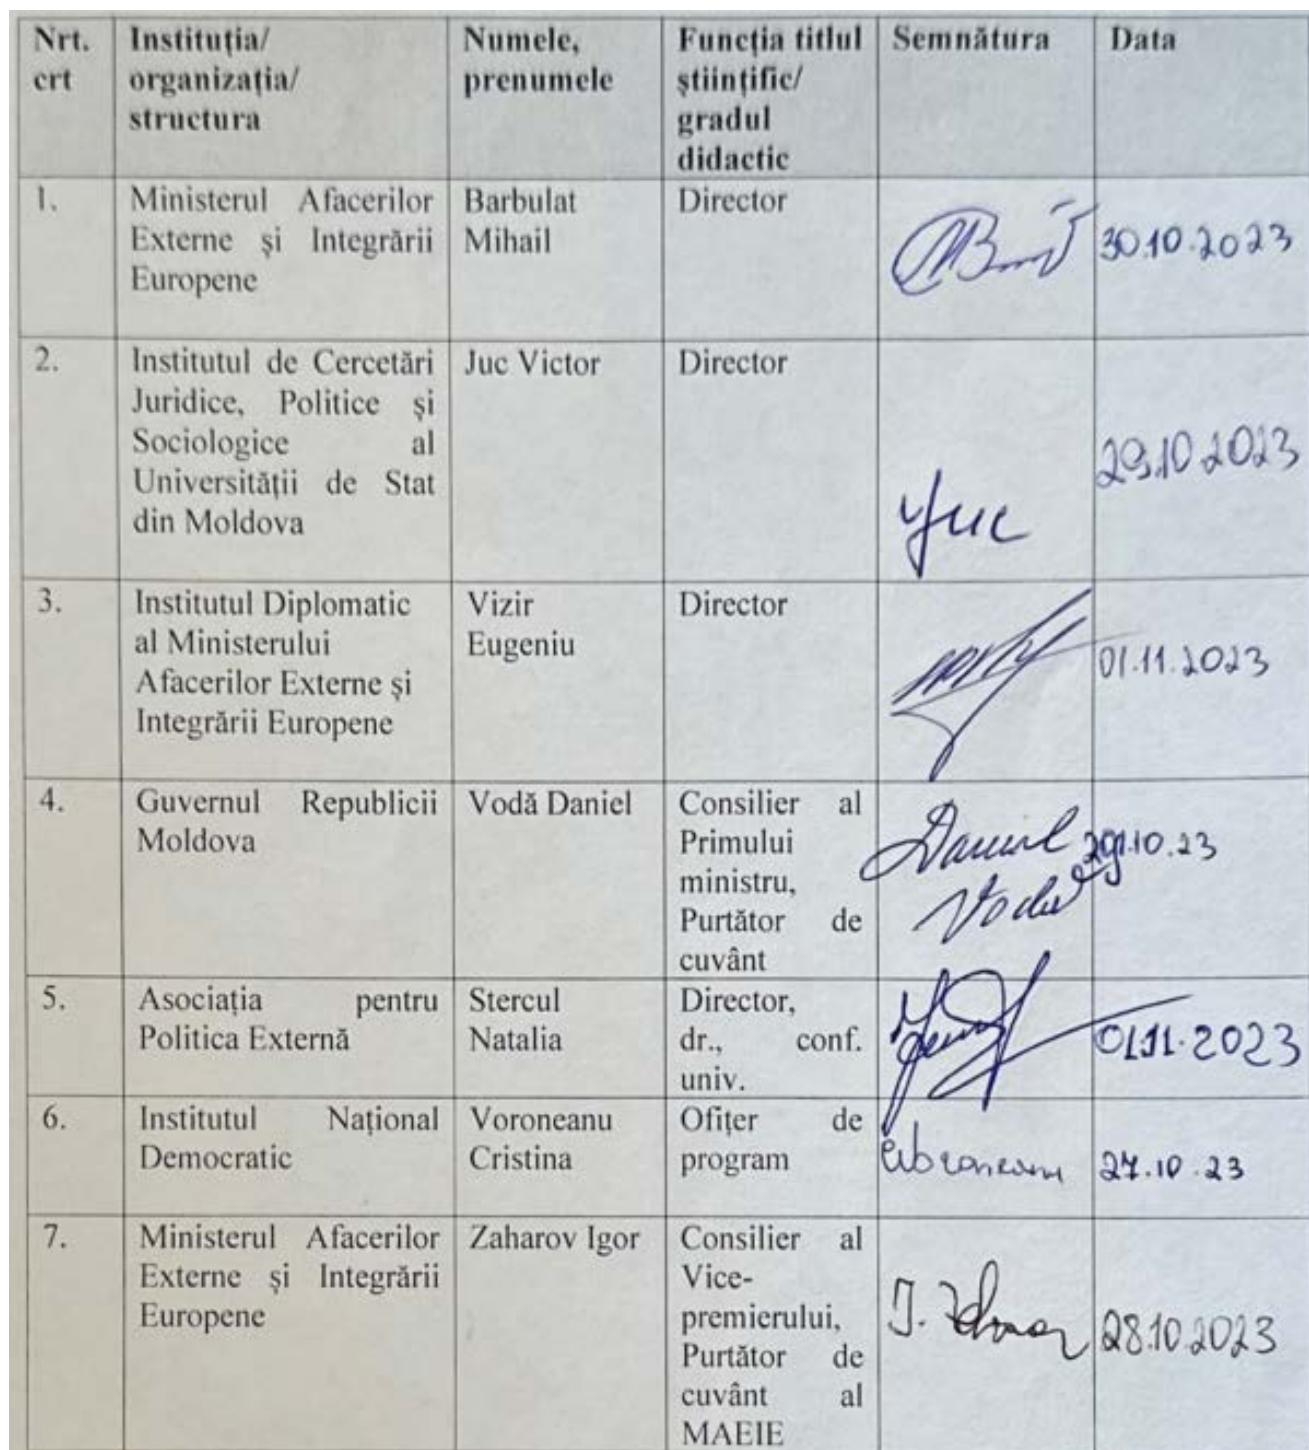 Nrt. crt
Instituția/ organizația/ structura
Numele, prenumele
Funcția titlul științific/ gradul didactic
Semnătura
Data
1.
Ministerul Afacerilor
Externe și Integrării
Europene
Barbulat
Mihail
Director
30.10.2023
2.
Institutul de Cercetări
Juridice, Politice și
Sociologice al
Universității de Stat
din Moldova
Juc Victor
Director
Juc
29.10.2023
3.
Institutul Diplomatic
al Ministerului
Afacerilor Externe și
Integrării Europene
Vizir
Eugeniu
Director
01.11.2023
4.
Guvernul Republicii
Moldova
Vodă Daniel
Consilier al
Primului
ministru,
Purtător de
cuvânt
Daniel
Vodă
29.10.23
5.
Asociația pentru
Politica Externă
Stercul
Natalia
Director,
dr., conf.
univ.
01.11.2023
6.
Institutul Național
Democratic
Voroneanu
Cristina
Ofițer de
program
27.10.23
7.
Ministerul Afacerilor
Externe și Integrării
Europene
Zaharov Igor
Consilier al
Vice-
premierului,
Purtător de
cuvânt al
MAEIE
28.10.2023